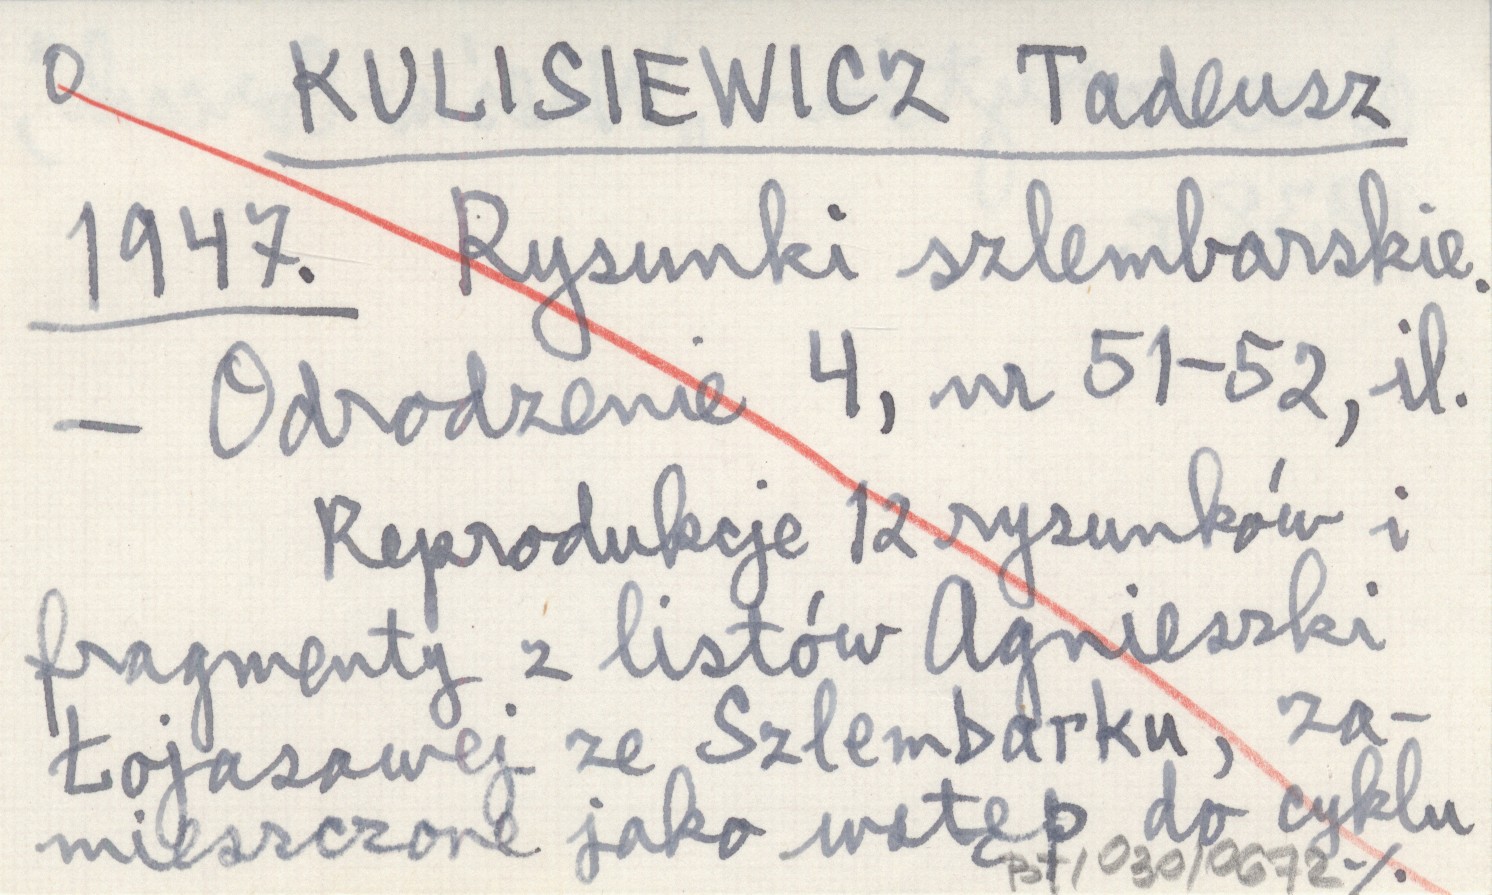 O KULISIEWICZ Tadeusz
1947. Rysunki szlembarskie.
– Odrodzenie 4, nr 51-52, il.
Reprodukcje 12 rysunków i
fragmenty z listów Agnieszki
Łojasowej ze Szlembarku, za-
mieszczone jako wstęp do cyklu
030/0672 -/.